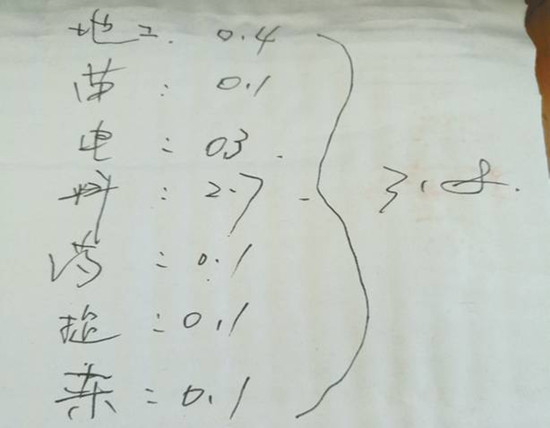 地工. 0.4
苗: 0.1
电: 03.
料: 2.7
: 0.1
: 0.1
: 0.1
3.8.